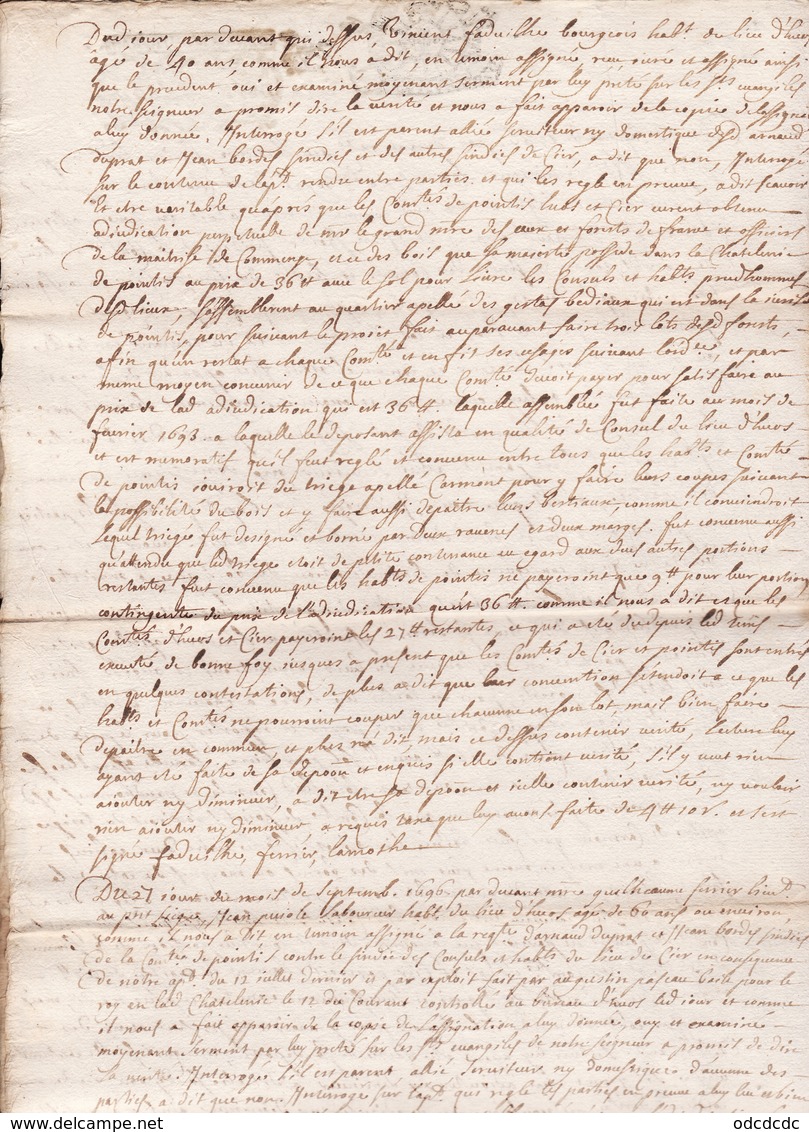 Dud jour par devant qui dessus faduilhe bourgeois habt. du lieu d'huos
agé de 40 ans comme il nous a dit, en temoin assigné, receu ouire et assigné ainsi
que le precedent, oui et examiné moyenant serment par luy preté sur les sts. evangiles
notre seigneur a promis dire la verité et nous a fait apparoir de la copie de l'assignaon
a luy donnée, Interrogé s'il est parent allié serviteur ny domestique desd arnaud
duprat et Jean bordes sindics et des autres sindics de Cier, a dit que non, Interrogé
sur le contenu de l'apt. rendu entre parties et qui les regle en preuve, a dit scavoir
Et etre veritable qu'aprés que les Comtés de pointis huos et Cier eurent obtenu
adiudication perpetuelle de mr le grand mre des eaux et forets de france et officiers
de la maitrise de Commenge, et ce des bois que sa majesté possede dans la Chatelenie
de pointis au prix de 36 tt avec le sol pour livre les Consuls et habts prudhommes
desd lieux s'assemblerent au quartier apellé des gertes bediaux qui est dans la
de pointis, pour suivant le projet fait auparavant faire trois lots desd forets,
afin qu'un restat a chaque Comté et en fit ses usages suivant l'ordce, et par
meme moyen convenir de ce que chaque Comté devoit payer pour satisfaire au
prix de lad adiudication qui est 36 tt. laquelle assemblée fut faite au mois de
fevrier 1693. a laquelle le deposant assista en qualité de Consul du lieu d'huos
et est memoratif qu'il feut reglé et convenu entre tous que les habts et Comté
de pointis iouiroit du triege apellé Carmont pour y faire leurs coupes suivant
la possibilité du bois et y faire aussi depaitre leurs bestiaux, comme il conviendroit
lequel triege fut designé et borné par deux et deux marges. fut convenu aussi
qu'attendu que led triege etoit de petite contenance eu egard aux deux autres portions
restantes fut convenu que les habts de pointis ne payeroint que 9 tt pour leur portion
contingente du prix de l'adiudication qu'est 36 tt. comme il nous a dit et que les
Comtés d'huos et Cier payeroint les 27 tt restantes, ce qui a eté du depuis led tems
executé de bonne foy iusques a present que les Comtés de Cier et pointis sont entrés
en quelques contestations, de plus a dit que leur convention s'etendoit a ce que les
habts et Comtés ne pourroint couper que chacune en son lot, mais bien faire
depaitre en commun, et plus n'a dit, mais ce dessus contenir verité, lecture luy
ayant eté faite de sa depoon et enquis si elle contient verité, s'il y veut rien
aiouter ny diminuer, a dit etre sa depoon et icelle contenir verité, ny vouloir
rien aiouter ny diminuer, a requis taxe que luy avons faite de 4 tt 10 s. et s'est
signé faduilhe, ferrier, lamothe
Du 27 jour du mois de Septemb. 1696 par devant mre guilheaume ferrier lieut.
au pnt siege, Jean puiole laboureur habt. du lieu d'huos agé de 60 ans ou environ,
comme il nous a dit en temoin assigné a la reqte d'arnaud duprat et Jean bordes sindics
de la Comté de pointis contre le sindic des Consuls et habts du lieu de Cier en consequence
de notre apt. du 12 juillet dernier et par exploit fait par augustin paseau baile pour le
roy en lad Chatelenie le 12 du Courant controllé au bureau d'huos led jour et comme
il nous a fait apparoir de la copie de l'assignation a luy donnée, ouy et examiné
moyenant serment par luy preté sur les sts evangiles de notre seigneur a promis de dire
la verité. Interrogé s'il est parent allié serviteur ny domestique d'aucune des
parties a dit que non Interrogé sur l'apt. qui regle les parties en preuve a luy et bien